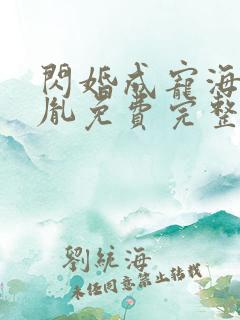 閃婚成寵海
胤免費完整
劉統海
未任同意禁止转载